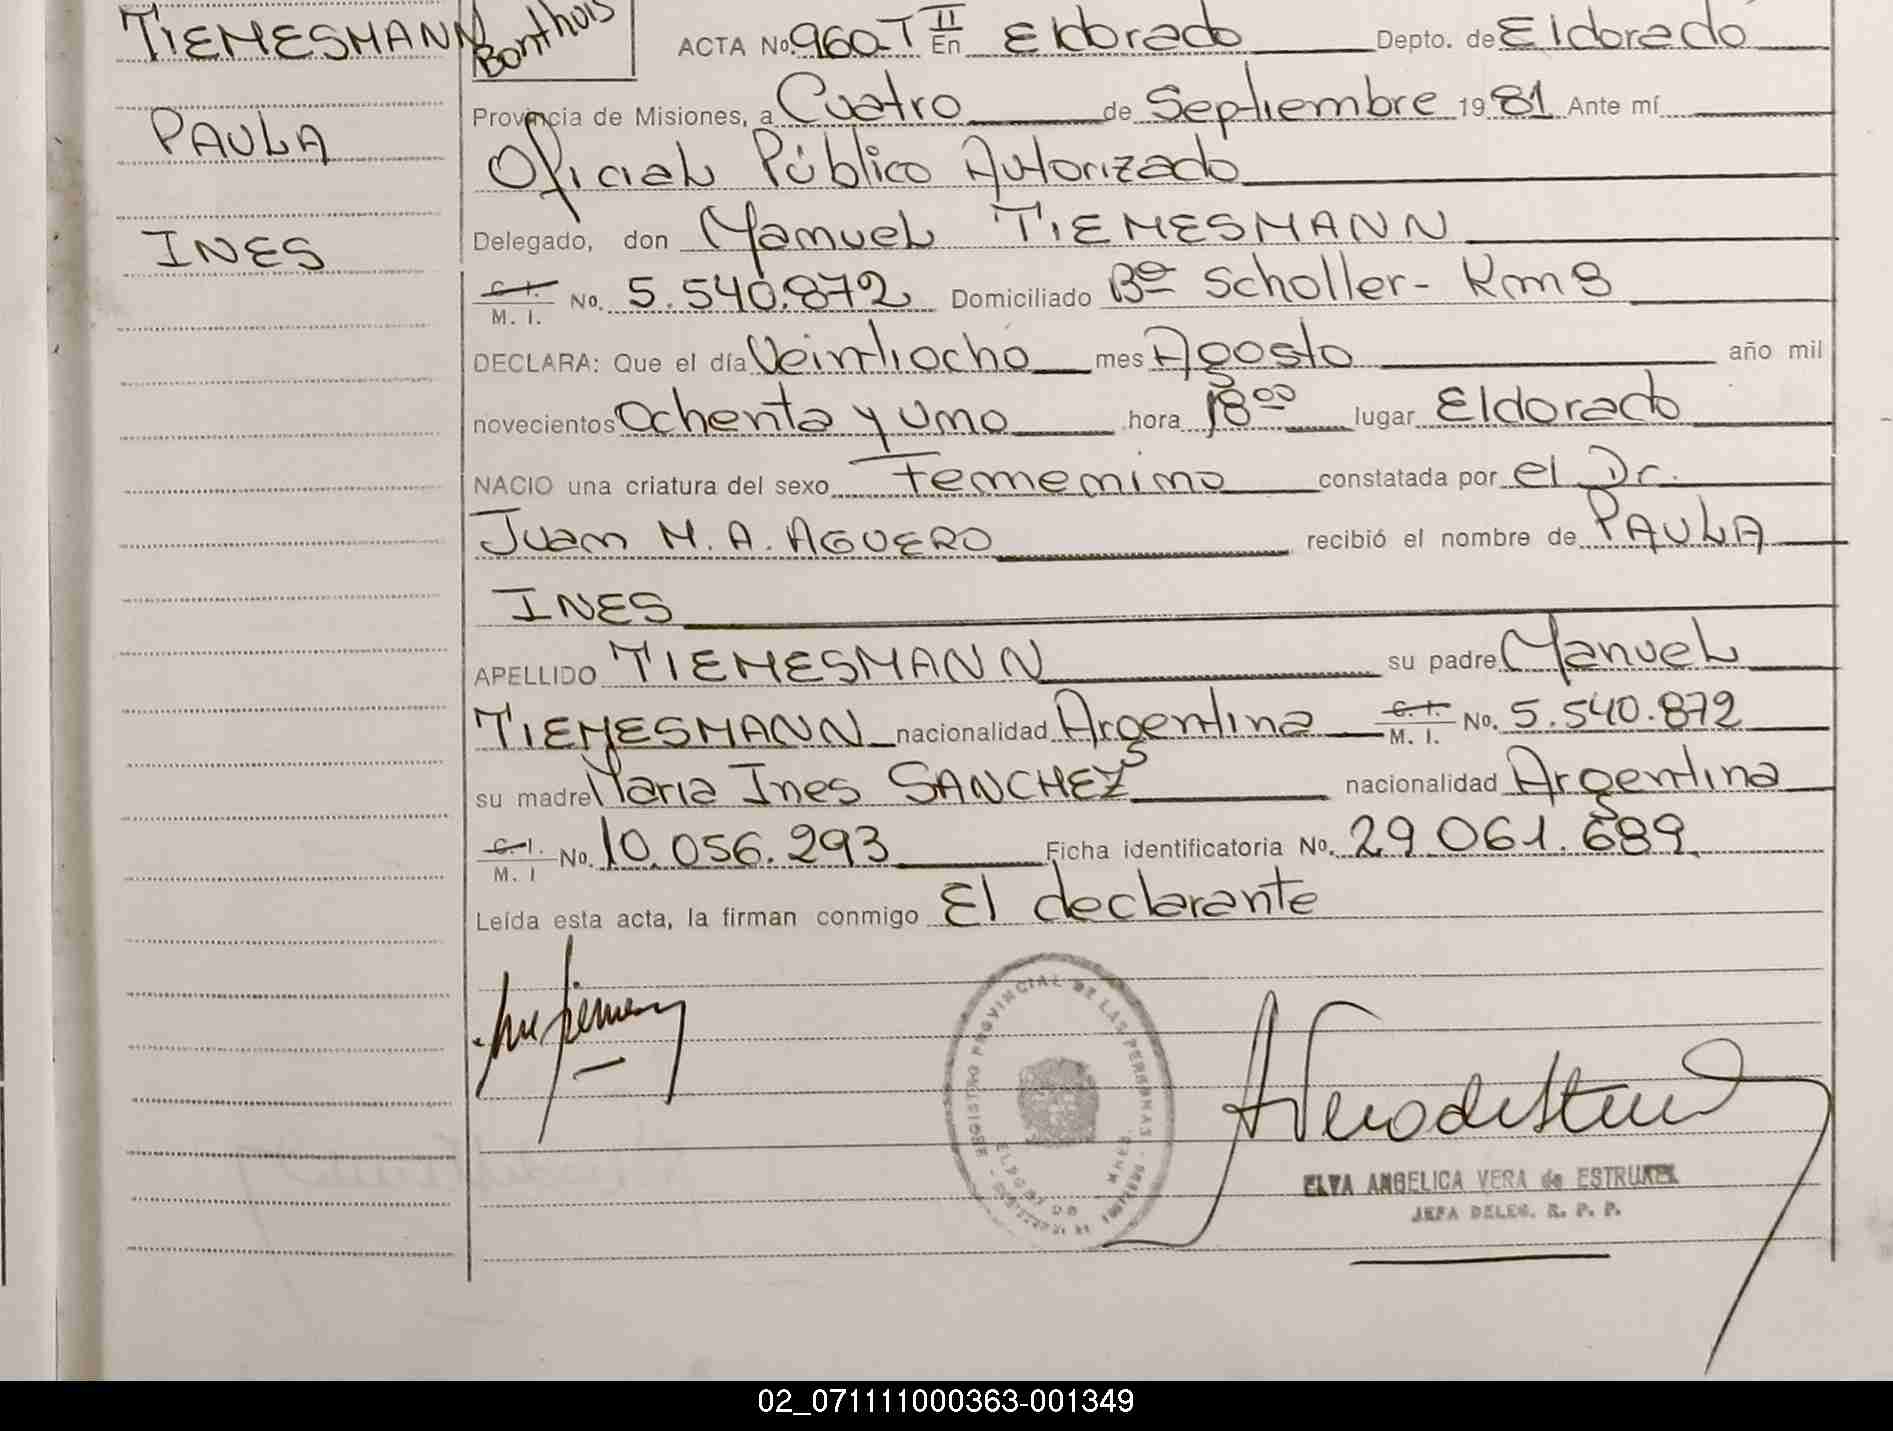 TIEMESMANN
PAULA
INES
Bonthuis
ACTA No. 960-T II En Eldorado Depto. de Eldorado
Provincia de Misiones, a Cuatro de Septiembre 1981 Ante mí
Oficial Público Autorizado
Delegado, don Manuel TIEMESMANN
C. I. M. I. No. 5.540.872 Domiciliado Bº Scholler - Km 8
DECLARA: Que el día Veintiocho mes Agosto año mil
novecientos Ochenta y uno hora 18 00 lugar Eldorado
NACIO una criatura del sexo Femenino constatada por el Dr.
Juan M. A. AGUERO recibió el nombre de PAULA
INES
APELLIDO TIEMESMANN su padre Manuel
TIEMESMANN nacionalidad Argentina C. I. M. I. No. 5.540.872
su madre Maria Ines SANCHEZ nacionalidad Argentina
C. I. M. I No. 10.056.293 Ficha identificatoria No. 29.061.689
Leída esta acta, la firman conmigo El declarante
REGISTRO PROVINCIAL DE LAS PERSONAS
ELDORADO
ELVA ANGELICA VERA de ESTRUMEK
JEFA DELEG. R. P. P.
02_071111000363-001349